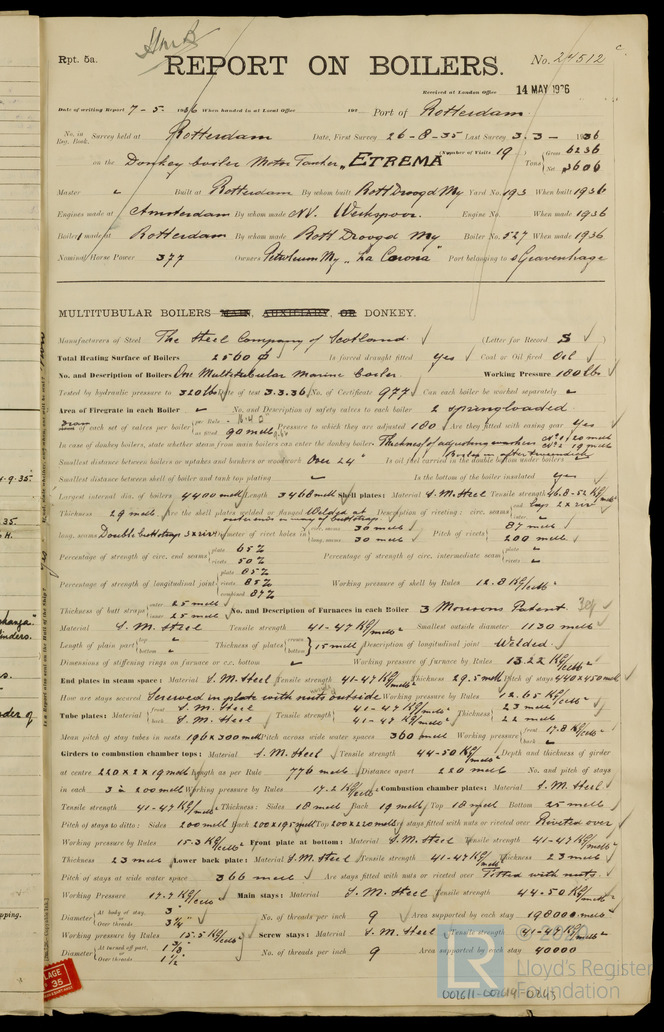 Rpt. 5a.
REPORT ON BOILERS.
No. 24512
Received at London Office 14 MAY 1936
Date of writing Report 7-5- 1936 When handed in at Local Office 193 Port of Rotterdam
No. in Reg. Book. Survey held at Rotterdam Date, First Survey 26-8-35 Last Survey 3-3- 1936
on the Donkey boiler Motor Tanker "ETREMA" (Number of Visits 19) Tons Gross 6236 Net 3606
Master " Built at Rotterdam By whom built Rott Droogd My Yard No. 193 When built 1936
Engines made at Amsterdam By whom made NV. Werkspoor. Engine No. When made 1936
Boiler made at Rotterdam By whom made Rott Droogd My Boiler No. 527 When made 1936
Nominal Horse Power 377 Owners Petroleum My "La Corona" Port belonging to s Gravenhage
MULTITUBULAR BOILERS MAIN, AUXILIARY, OR DONKEY.
Manufacturers of Steel The Steel Company of Scotland (Letter for Record S)
Total Heating Surface of Boilers 2560 Is forced draught fitted yes Coal or Oil fired Oil
No. and Description of Boilers One Multitubular Marine boiler Working Pressure 180 lbs
Tested by hydraulic pressure to 320 lbs Date of test 3.3.36 No. of Certificate 977 Can each boiler be worked separately
Area of Firegrate in each Boiler No. and Description of safety valves to each boiler 2 spring loaded
of each set of valves per boiler per Rule as fitted 90 mm Pressure to which they are adjusted 180 Are they fitted with easing gear yes
In case of donkey boilers, state whether steam from main boilers can enter the donkey boiler Thickness of adjusting washers No 1 20 mm No 2 19 mm
Smallest distance between boilers or uptakes and bunkers or woodwork Over 24" Is oil fuel carried in the double bottom under boilers
Smallest distance between shell of boiler and tank top plating Is the bottom of the boiler insulated yes
Largest internal dia. of boilers 4400 mm Length 3468 mm Shell plates: Material S.M. Steel Tensile strength 46.8-52 KG/mm²
Thickness 29 mm Are the shell plates welded or flanged Welded at Description of riveting: circ. seams end Lap 2 x riv inter.
long. seams Double buttstraps 3 x riv Diameter of rivet holes in circ. seams 30 mm long. seams 30 mm Pitch of rivets 87 mm 200 mm
Percentage of strength of circ. end seams plate 65% rivets 50% Percentage of strength of circ. intermediate seam plate rivets
Percentage of strength of longitudinal joint plate 85% rivets 85% combined 87% Working pressure of shell by Rules 12.8 KG/cm²
Thickness of butt straps outer 25 mm inner 25 mm No. and Description of Furnaces in each Boiler 3 Morisons Patent
Material S.M. Steel Tensile strength 41-47 KG/mm² Smallest outside diameter 1130 mm
Length of plain part top bottom Thickness of plates crown bottom 15 mm Description of longitudinal joint Welded
Dimensions of stiffening rings on furnace or c.c. bottom Working pressure of furnace by Rules 13.22 KG/cm²
End plates in steam space: Material S.M. Steel Tensile strength 41-47 KG/mm² Thickness 29.5 mm Pitch of stays 440 x 450 mm
How are stays secured Screwed in plate with nuts outside Working pressure by Rules 12.65 KG/cm²
Tube plates: Material front S.M. Steel back S.M. Steel Tensile strength 41-47 KG/mm² 41-47 KG/mm² Thickness 23 mm 22 mm
Mean pitch of stay tubes in nests 196 x 300 mm Pitch across wide water spaces 360 mm Working pressure front 17.8 KG/cm² back
Girders to combustion chamber tops: Material S.M. Steel Tensile strength 44-50 KG/mm² Depth and thickness of girder
at centre 220 x 2 x 19 mm Length as per Rule 776 mm Distance apart 220 mm No. and pitch of stays
in each 3 a 200 mm Working pressure by Rules 17.2 KG/cm² Combustion chamber plates: Material S.M. Steel
Tensile strength 41-47 KG/mm² Thickness: Sides 18 mm Back 19 mm Top 18 mm Bottom 25 mm
Pitch of stays to ditto: Sides 200 mm Back 200 x 195 mm Top 200 x 220 mm Are stays fitted with nuts or riveted over Riveted over
Working pressure by Rules 15.3 KG/cm² Front plate at bottom: Material S.M. Steel Tensile strength 41-47 KG/mm²
Thickness 23 mm Lower back plate: Material S.M. Steel Tensile strength 41-47 KG/mm² Thickness 23 mm
Pitch of stays at wide water space 366 mm Are stays fitted with nuts or riveted over Fitted with nuts.
Working Pressure 17.7 KG/cm² Main stays: Material S.M. Steel Tensile strength 44-50 KG/mm²
Diameter At body of stay, or Over threads 3" 3¼" No. of threads per inch 9 Area supported by each stay 198000 mm²
Working pressure by Rules 15.5 KG/cm² Screw stays: Material S.M. Steel Tensile strength 41-47 KG/mm²
Diameter At turned off part, or Over threads 1⅜" 1½" No. of threads per inch 9 Area supported by each stay 40000
© 20
LR Lloyd's Register Foundation
001611-001614-0243